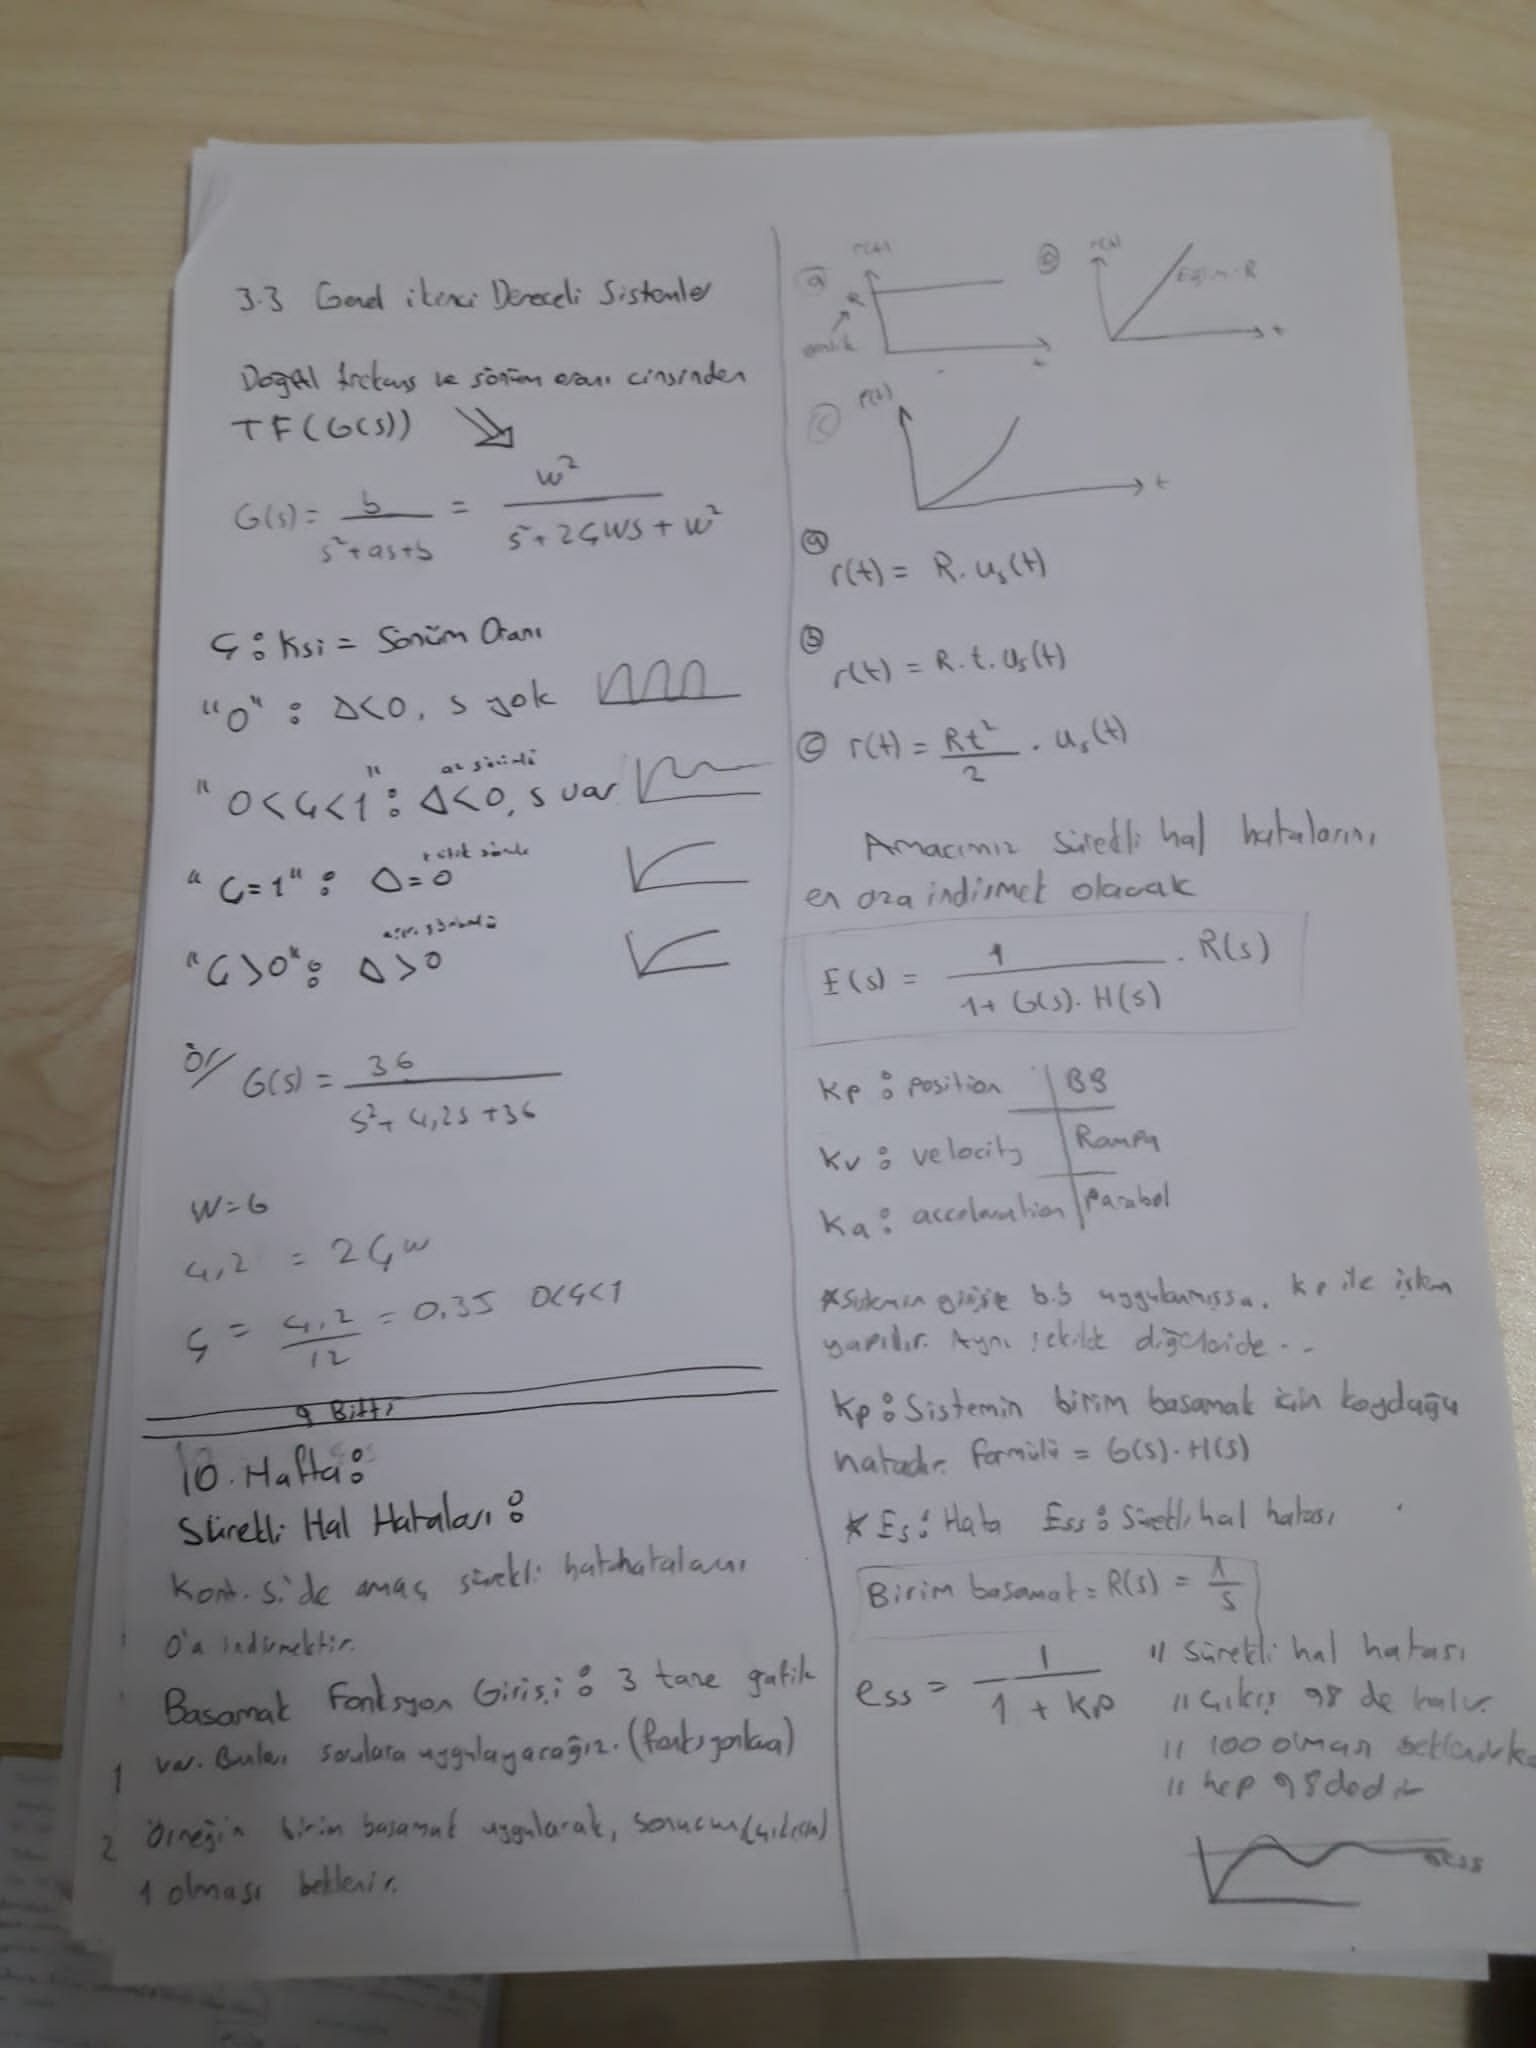 3.3 Genel ikinci Dereceli Sistemler
Doğal frekans ve sönüm oranı cinsinden
TF(G(s))
G(s) = b / s²+as+b = w² / s²+2ςws+w²
ς : Ksi = Sönüm Oranı
"0" : Δ<0, s yok
az sönümlü
"0<ς<1" : Δ<0, s var
kritik sönüm
"ς=1" : Δ=0
aşırı sönümlü
"ς>0" : Δ>0
Ör/ G(s) = 36 / s²+4,2s+36
W=6
4,2 = 2ςw
ς = 4,2 / 12 = 0,35 0<ς<1
9 Bitti
10. Hafta :
Sürekli Hal Hataları :
Kont. S.'de amaç sürekli hathataları
0'a indirmektir.
Basamak Fonksyon Girişi : 3 tane gafik
1 var. Bunları sorulara uygulayacağız. (fonksyonlara)
2 Örneğin birim basamak uygularak, sonucun (çıkışın)
1 olması beklenir.
a r(t) R t
b r(t) Eğim=R t
c r(t) t
a r(t) = R. us(t)
b r(t) = R.t. us(t)
c r(t) = Rt² / 2 . us(t)
Amacımız sürekli hal hatalarını
en aza indirmek olacak
E(s) = 1 / 1+G(s).H(s) . R(s)
Kp : position | BB
Kv : velocity | Rampa
Ka : acceleration | Parabol
*Sistemin girişie b.b uygulanmışsa, kp ile işlem
yapılır. Aynı şekilde diğerleride..
Kp : Sistemin birim basamak için koyduğu
hatadır. Formülü = G(s).H(s)
* Es : Hata Ess : Sürekli hal hatası
Birim basamak = R(s) = 1/s
ess = 1 / 1 + Kp
" Sürekli hal hatası
" Çıkış 98 de kalır.
" 100 olması beklenirken
" hep 98dedir
ess